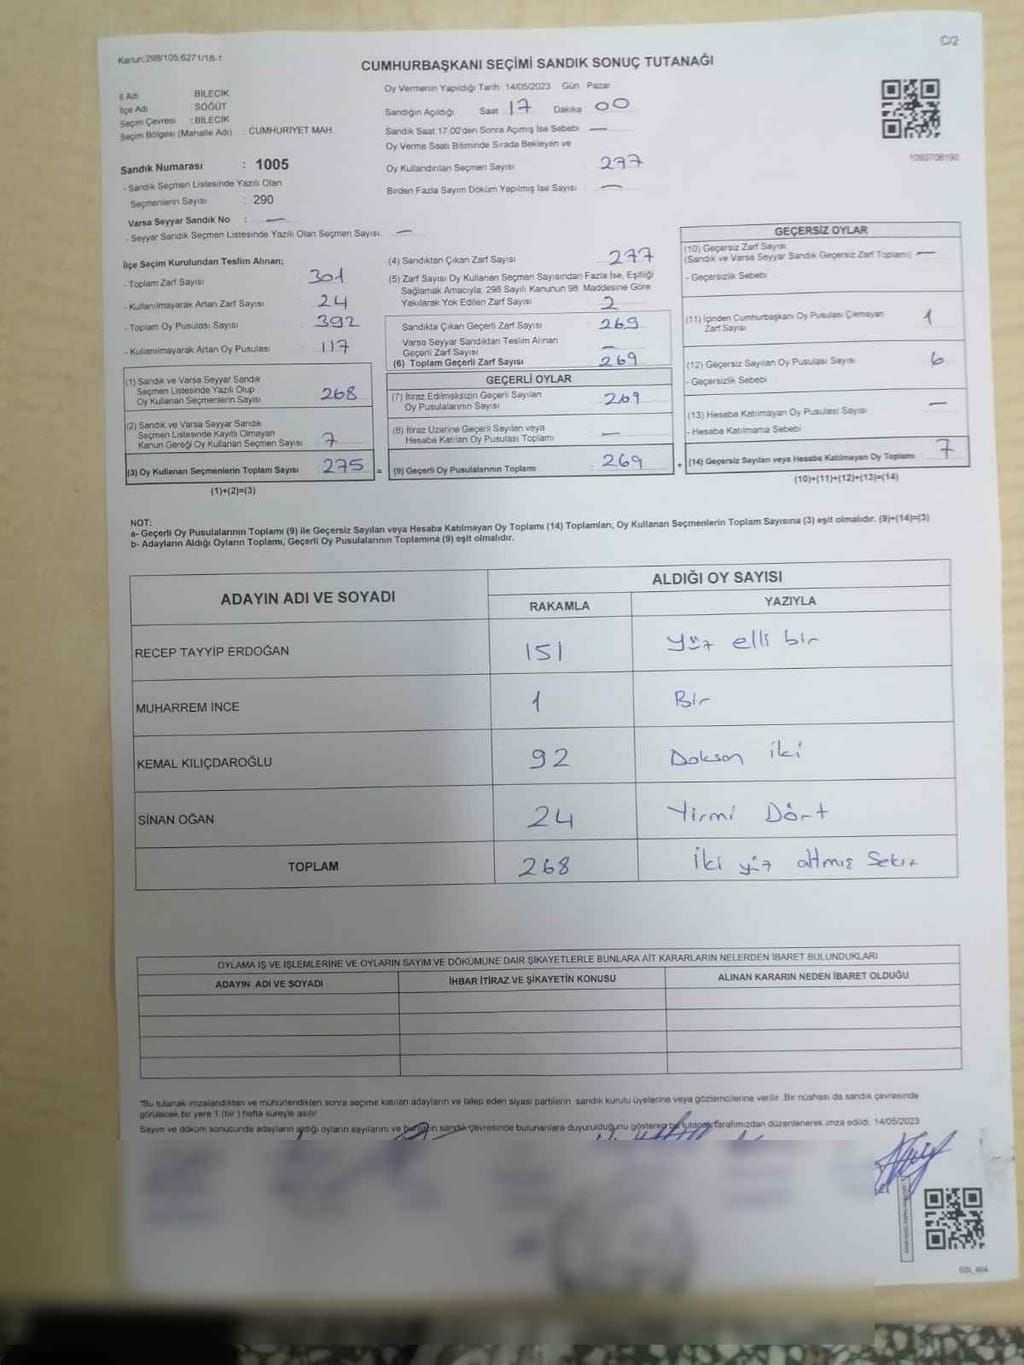 C/2
Kanun:298/105,6271/18-1
CUMHURBAŞKANI SEÇİMİ SANDIK SONUÇ TUTANAĞI
İl Adı BİLECİK
İlçe Adı SÖĞÜT
Seçim Çevresi : BİLECİK
Seçim Bölgesi (Mahalle Adı) : CUMHURİYET MAH.
Sandık Numarası : 1005
- Sandık Seçmen Listesinde Yazılı Olan
Seçmenlerin Sayısı : 290
Varsa Seyyar Sandık No : —
- Seyyar Sandık Seçmen Listesinde Yazılı Olan Seçmen Sayısı: —
Oy Vermenin Yapıldığı Tarih 14/05/2023 Gün Pazar
Sandığın Açıldığı Saat 17 Dakika 00
Sandık Saat 17.00'den Sonra Açılmış İse Sebebi —
Oy Verme Saati Bitiminde Sırada Bekleyen ve
Oy Kullandırılan Seçmen Sayısı 277
Birden Fazla Sayım Döküm Yapılmış İse Sayısı —
1093708190
İlçe Seçim Kurulundan Teslim Alınan;
- Toplam Zarf Sayısı 301
- Kullanılmayarak Artan Zarf Sayısı 24
- Toplam Oy Pusulası Sayısı 392
- Kullanılmayarak Artan Oy Pusulası 117
(1) Sandık ve Varsa Seyyar Sandık
Seçmen Listesinde Yazılı Olup
Oy Kullanan Seçmenlerin Sayısı 268
(2) Sandık ve Varsa Seyyar Sandık
Seçmen Listesinde Kayıtlı Olmayan
Kanun Gereği Oy Kullanan Seçmen Sayısı 7
(3) Oy Kullanan Seçmenlerin Toplam Sayısı 275 =
(1)+(2)=(3)
(4) Sandıktan Çıkan Zarf Sayısı 277
(5) Zarf Sayısı Oy Kullanan Seçmen Sayısından Fazla İse, Eşitliği
Sağlamak Amacıyla, 298 Sayılı Kanunun 98. Maddesine Göre
Yakılarak Yok Edilen Zarf Sayısı 2
Sandıkta Çıkan Geçerli Zarf Sayısı : 269
Varsa Seyyar Sandıktan Teslim Alınan
Geçerli Zarf Sayısı : —
(6) Toplam Geçerli Zarf Sayısı : 269
GEÇERLİ OYLAR
(7) İtiraz Edilmeksizin Geçerli Sayılan
Oy Pusulalarının Sayısı : 269
(8) İtiraz Üzerine Geçerli Sayılan veya
Hesaba Katılan Oy Pusulası Toplamı : —
(9) Geçerli Oy Pusulalarının Toplamı : 269 +
GEÇERSİZ OYLAR
(10) Geçersiz Zarf Sayısı
(Sandık ve Varsa Seyyar Sandık Geçersiz Zarf Toplamı) —
- Geçersizlik Sebebi :
(11) İçinden Cumhurbaşkanı Oy Pusulası Çıkmayan
Zarf Sayısı 1
(12) Geçersiz Sayılan Oy Pusulası Sayısı : 6
- Geçersizlik Sebebi :
(13) Hesaba Katılmayan Oy Pusulası Sayısı —
- Hesaba Katılmama Sebebi :
(14) Geçersiz Sayılan veya Hesaba Katılmayan Oy Toplamı 7
(10)+(11)+(12)+(13)=(14)
NOT:
a- Geçerli Oy Pusulalarının Toplamı (9) ile Geçersiz Sayılan veya Hesaba Katılmayan Oy Toplamı (14) Toplamları, Oy Kullanan Seçmenlerin Toplam Sayısına (3) eşit olmalıdır. (9)+(14)=(3)
b- Adayların Aldığı Oyların Toplamı, Geçerli Oy Pusulalarının Toplamına (9) eşit olmalıdır.
ADAYIN ADI VE SOYADI ALDIĞI OY SAYISI
RAKAMLA YAZIYLA
RECEP TAYYİP ERDOĞAN 151 Yüz elli bir
MUHARREM İNCE 1 Bir
KEMAL KILIÇDAROĞLU 92 Doksan iki
SİNAN OĞAN 24 Yirmi Dört
TOPLAM 268 İki yüz altmış Sekiz
OYLAMA İŞ VE İŞLEMLERİNE VE OYLARIN SAYIM VE DÖKÜMÜNE DAİR ŞİKAYETLERLE BUNLARA AİT KARARLARIN NELERDEN İBARET BULUNDUKLARI
ADAYIN ADI VE SOYADI İHBAR İTİRAZ VE ŞİKAYETİN KONUSU ALINAN KARARIN NEDEN İBARET OLDUĞU
"Bu tutanak imzalandıktan ve mühürlendikten sonra seçime katılan adayların ve talep eden siyasi partilerin sandık kurulu üyelerine veya gözlemcilerine verilir. Bir nüshası da sandık çevresinde
görülecek bir yere 1 (bir) hafta süreyle asılır
Sayım ve döküm sonucunda adayların aldığı oyların sayılarını ve bunların sandık çevresinde bulunanlara duyurulduğunu gösteren bu tutanak tarafımızdan düzenlenerek imza edildi. 14/05/2023